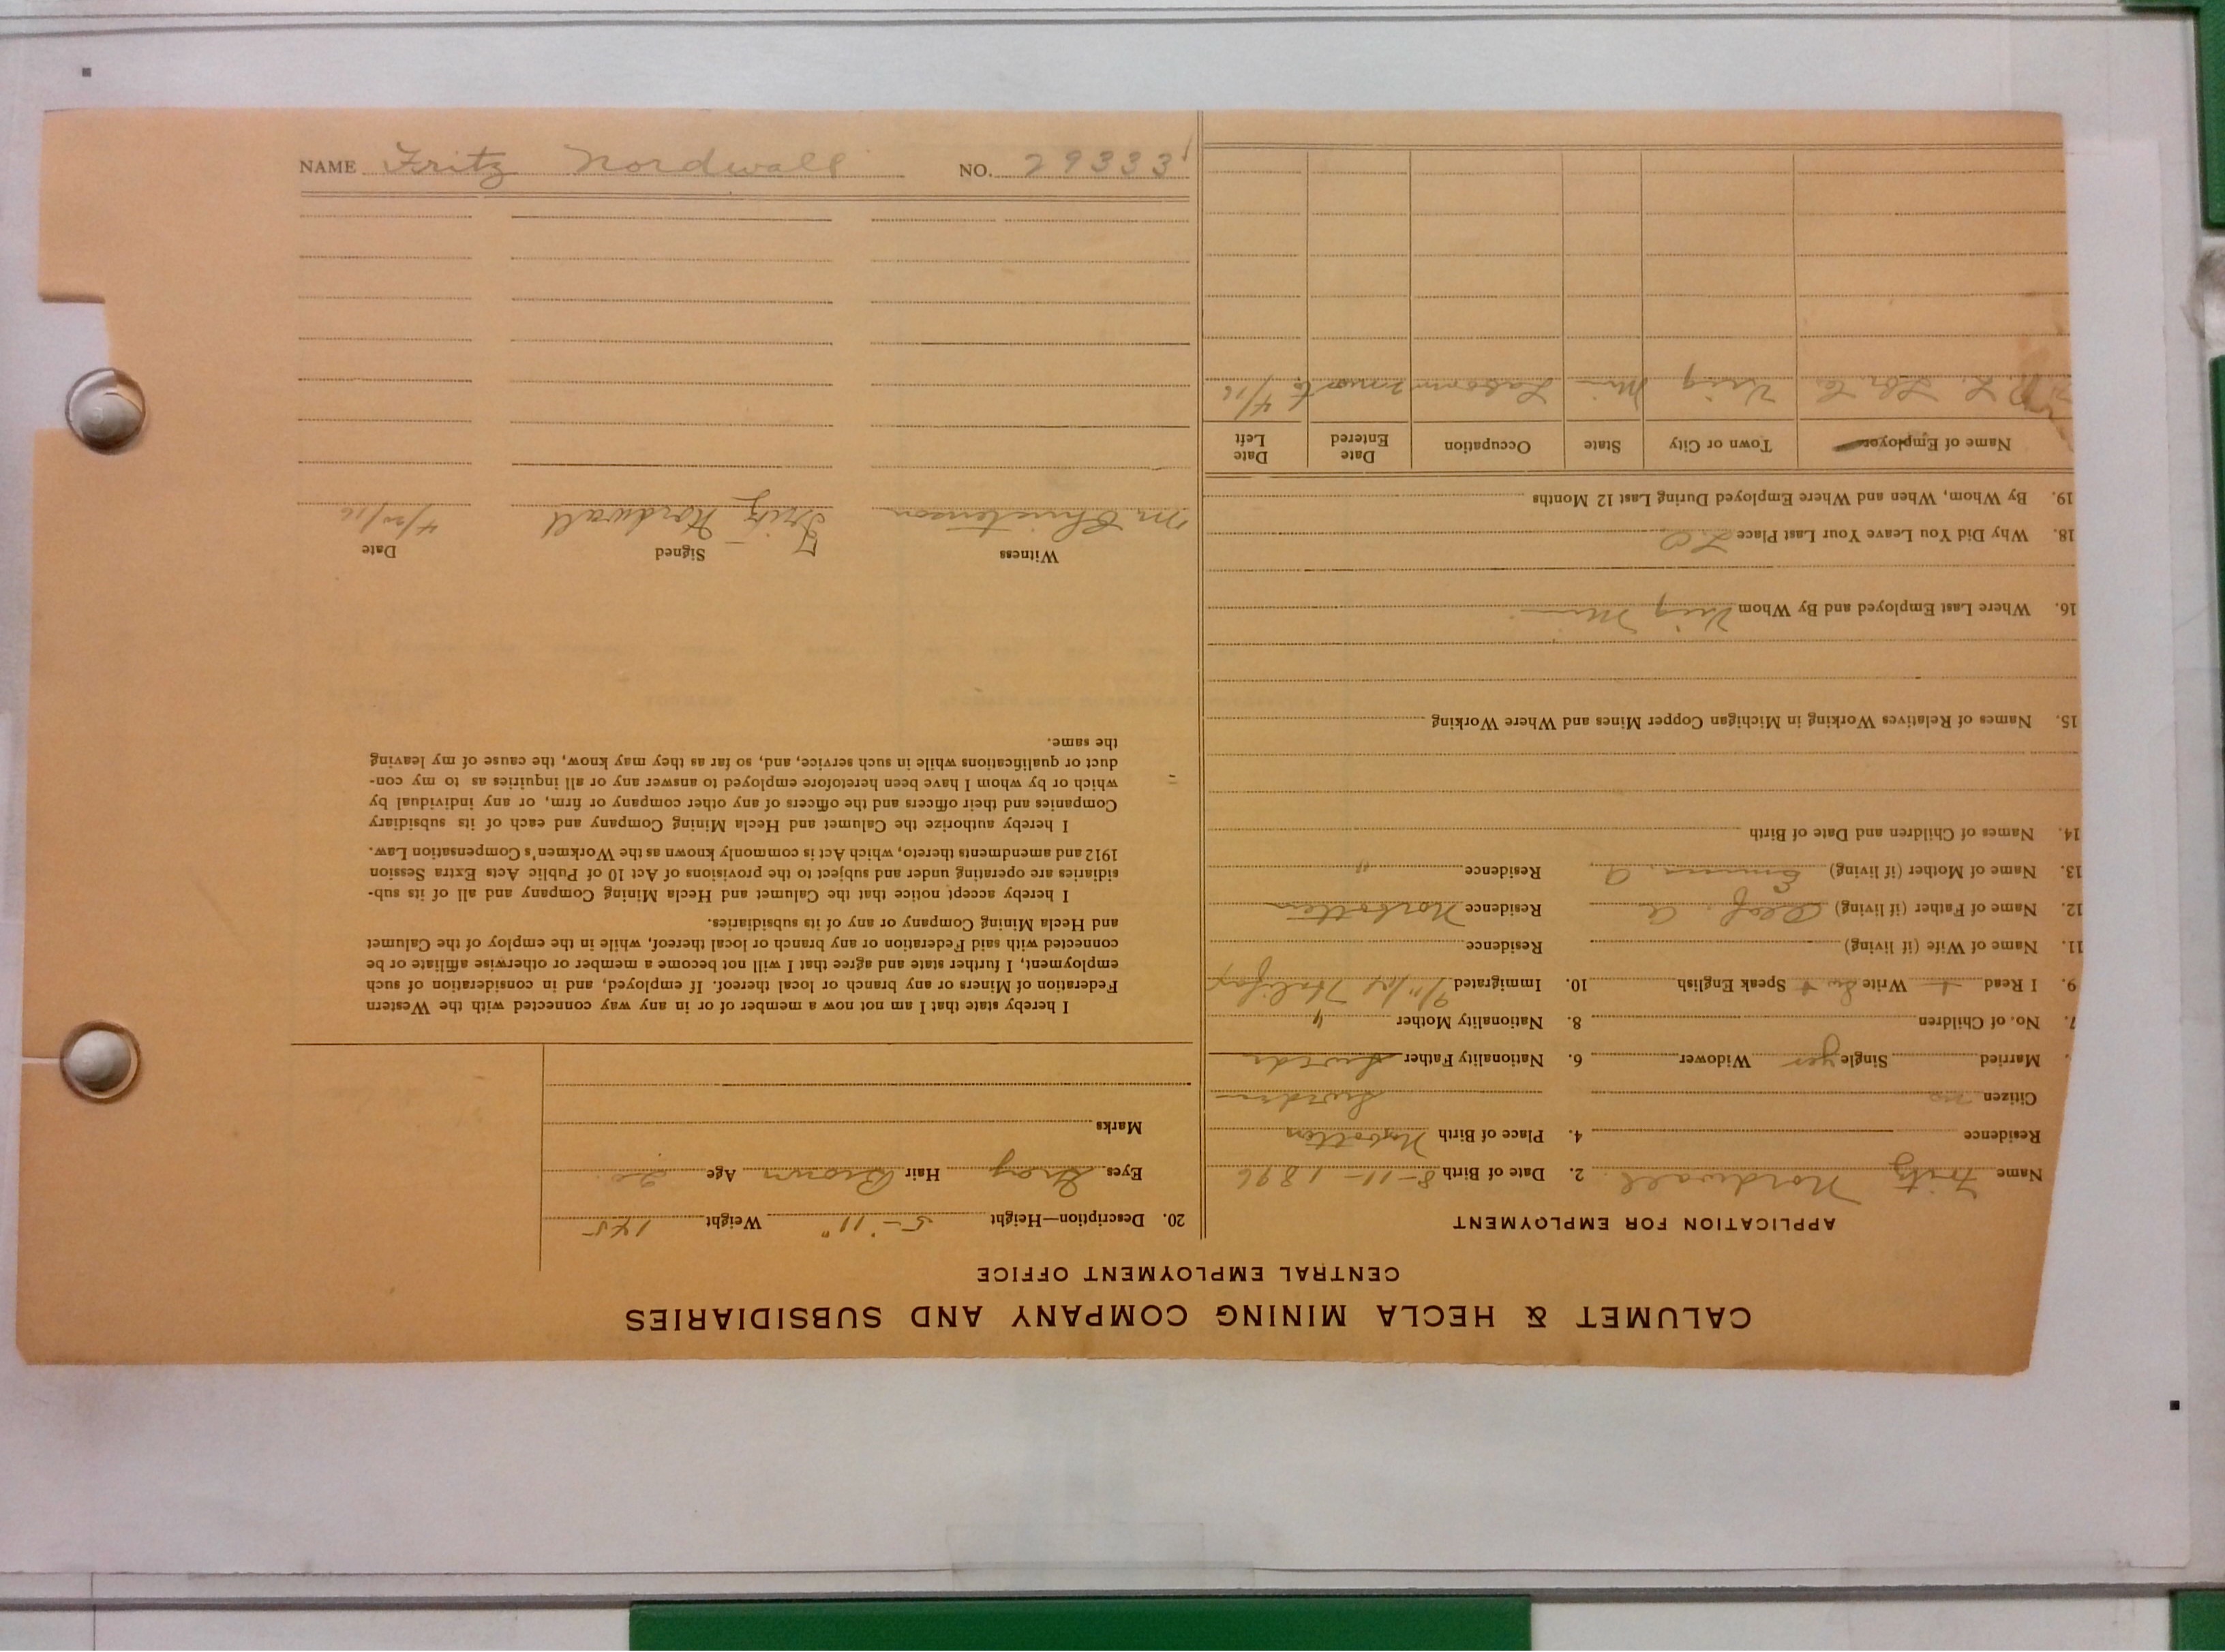 NAME Fritz Nordwall NO. 29333
CALUMET & HECLA MINING COMPANY AND SUBSIDIARIES
CENTRAL EMPLOYMENT OFFICE
APPLICATION FOR EMPLOYMENT
Name Fritz Nordwall 2. Date of Birth 8-11-1896
Residence 4. Place of Birth Norbotten
Citizen no Sweden
Married Single yes Widower 6. Nationality Father Swede
7. No. of Children 8. Nationality Mother "
9. I Read + Write Sw + Speak English 10. Immigrated Halifax
11. Name of Wife (if living) Residence
12. Name of Father (if living) Olof. A Residence Norbotten
13. Name of Mother (if living) Emma. A Residence "
14. Names of Children and Date of Birth
15. Names of Relatives Working in Michigan Copper Mines and Where Working
16. Where Last Employed and By Whom Virg Min
18. Why Did You Leave Your Last Place L.O
19. By Whom, When and Where Employed During Last 12 Months
Name of Employer Town or City State Occupation Date Entered Date Left
R. L. Co. Virg Min Laborer 4/16
20. Description—Height 5-' 11" Weight 145
Eyes Gray Hair Brown Age 20
Marks
I hereby state that I am not now a member of or in any way connected with the Western
Federation of Miners or any branch or local thereof. If employed, and in consideration of such
employment, I further state and agree that I will not become a member or otherwise affiliate or be
connected with said Federation or any branch or local thereof, while in the employ of the Calumet
and Hecla Mining Company or any of its subsidiaries.
I hereby accept notice that the Calumet and Hecla Mining Company and all of its sub-
sidiaries are operating under and subject to the provisions of Act 10 of Public Acts Extra Session
1912 and amendments thereto, which Act is commonly known as the Workmen's Compensation Law.
I hereby authorize the Calumet and Hecla Mining Company and each of its subsidiary
Companies and their officers and the officers of any other company or firm, or any individual by
which or by whom I have been heretofore employed to answer any or all inquiries as to my con-
duct or qualifications while in such service, and, so far as they may know, the cause of my leaving
the same.
Witness Signed Date
M Christenson Fritz Nordwall 4/20/16